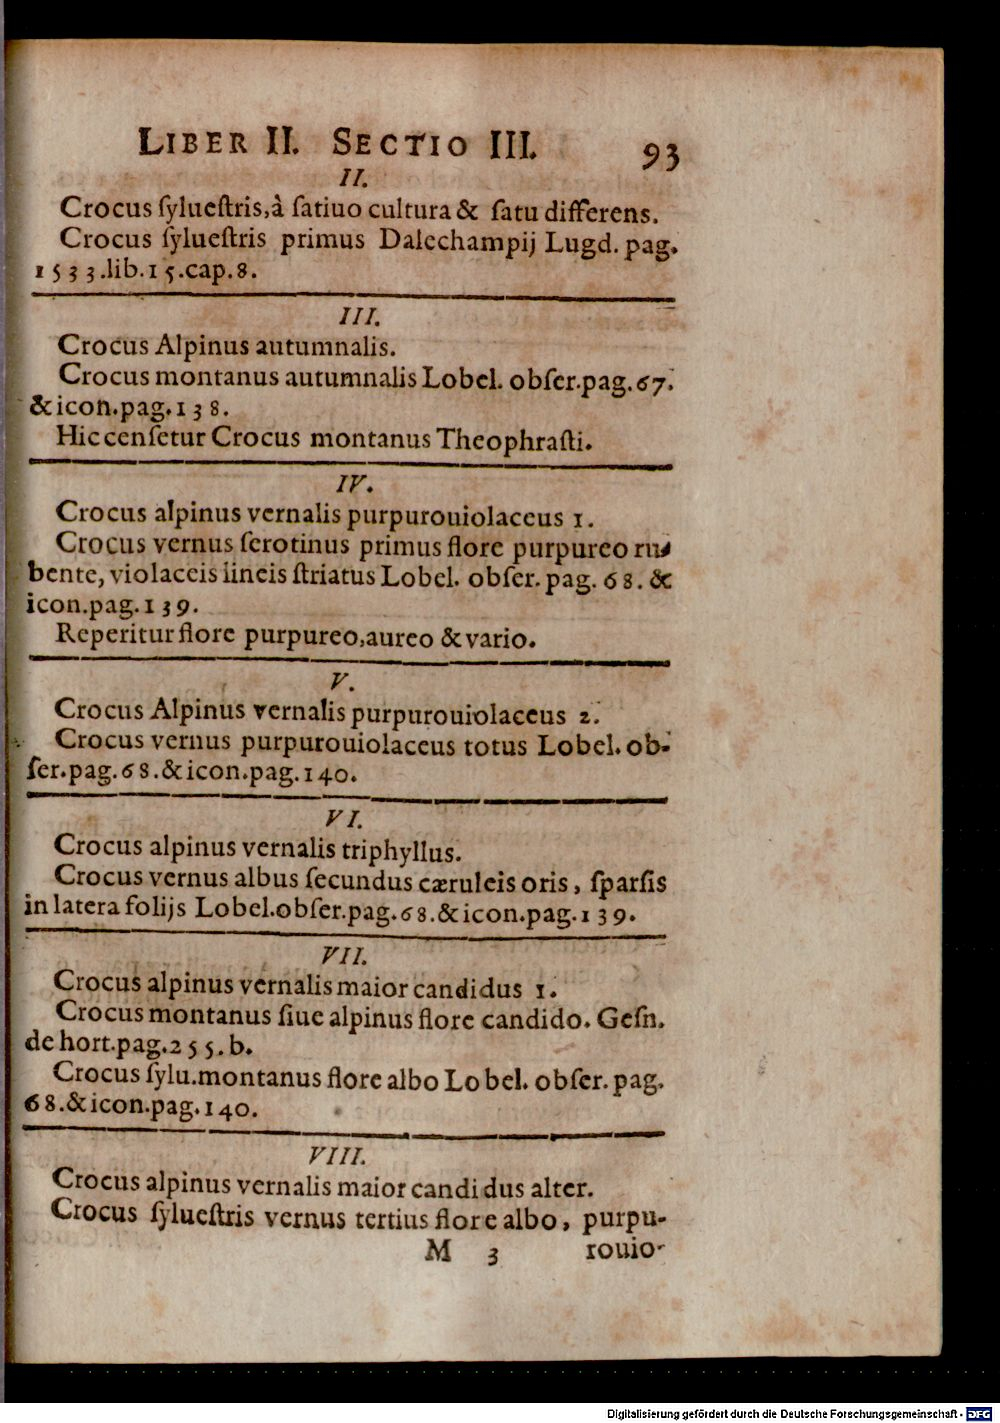 LIBER II. SECTIO III. 93
II.
Crocus ſylueſtris,à ſatiuo cultura & ſatu differens.
Crocus ſylueſtris primus Dalechampij Lugd. pag.
1533.lib.15.cap.8.
III.
Crocus Alpinus autumnalis.
Crocus montanus autumnalis Lobel. obſer.pag.67.
& icon.pag.138.
Hic cenſetur Crocus montanus Theophraſti.
IV.
Crocus alpinus vernalis purpurouiolaceus 1.
Crocus vernus ſerotinus primus flore purpureo ru-
bente, violaceis lineis ſtriatus Lobel. obſer. pag. 68. &
icon.pag.139.
Reperitur flore purpureo,aureo & vario.
V.
Crocus Alpinus vernalis purpurouiolaceus 2.
Crocus vernus purpurouiolaceus totus Lobel. ob-
ſer.pag.68.& icon.pag.140.
VI.
Crocus alpinus vernalis triphyllus.
Crocus vernus albus ſecundus cæruleis oris, ſparſis
in latera folijs Lobel.obſer.pag.68.& icon.pag.139.
VII.
Crocus alpinus vernalis maior candidus 1.
Crocus montanus ſiue alpinus flore candido. Geſn.
de hort.pag.255.b.
Crocus ſylu.montanus flore albo Lobel. obſer. pag.
68.& icon.pag.140.
VIII.
Crocus alpinus vernalis maior candidus alter.
Crocus ſylueſtris vernus tertius flore albo, purpu-
M 3 rouio-
Digitalisierung gefördert durch die Deutsche Forschungsgemeinschaft - DFG